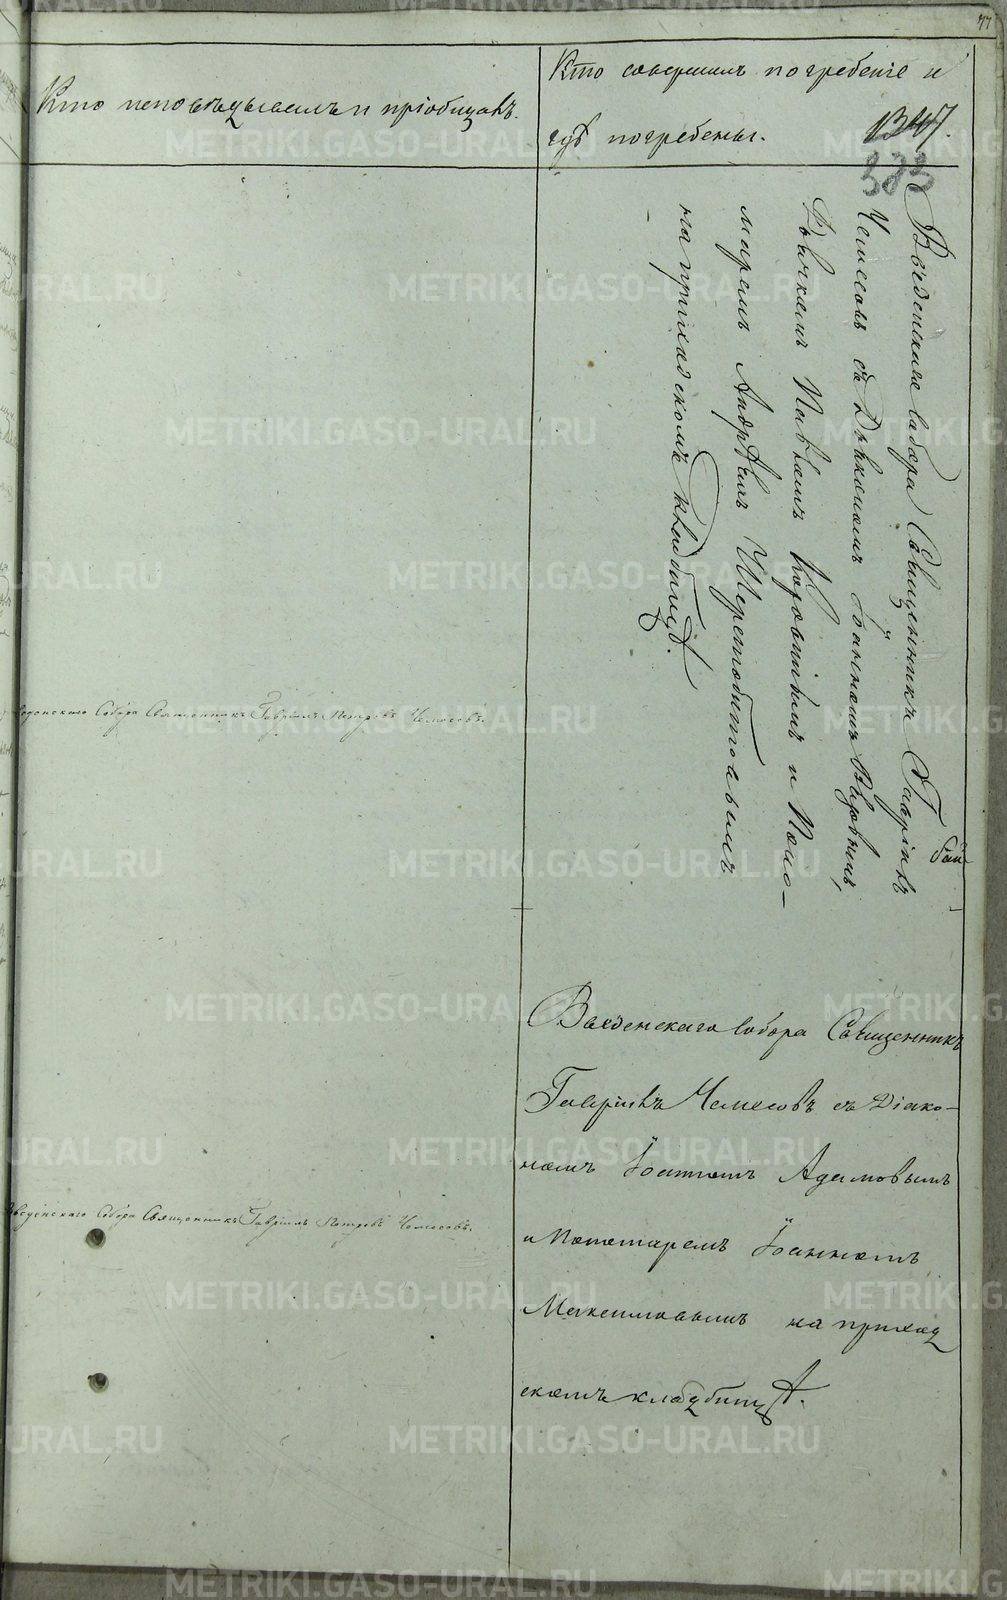 77
Кто исповѣдывалъ и пріобщалъ.
Кто совершилъ погребеніе и
гдѣ погребены.
1347.
383
Введенскаго собора Священникъ Гавріилъ
Чемесовъ съ Діакономъ Іоанномъ
Дьячкомъ Павломъ и Поно-
маремъ Андреемъ Шеретобитовымъ
на приходскомъ кладбищѣ.
Собора Священникъ Гавріилъ Петровъ Чемесовъ.
Введенскаго собора Священникъ
Гавріилъ Чемесовъ съ Діако-
номъ Іоанномъ Адамовымъ
и Пономаремъ Іоанномъ
Максимовымъ на приход
скомъ кладбищѣ.
Введенскаго Собора Священникъ Гавріилъ Петровъ Чемесовъ.
METRIKI.GASO-URAL.RU